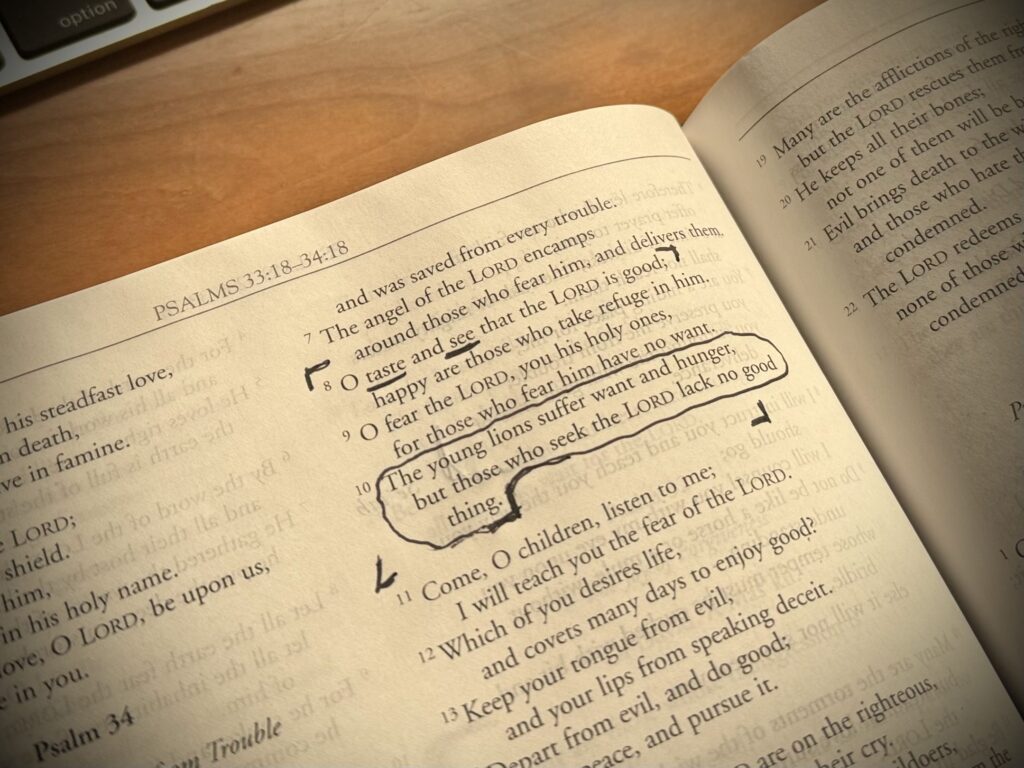 option
PSALMS 33:18–34:18
his steadfast love;
death,
ve in famine.
LORD;
shield.
him,
in his holy name.
love, O LORD, be upon us,
e in you.
Psalm 34
Trouble
and was saved from every trouble.
7 The angel of the LORD encamps
around those who fear him, and delivers them.
8 O taste and see that the LORD is good;
happy are those who take refuge in him.
9 O fear the LORD, you his holy ones,
for those who fear him have no want.
10 The young lions suffer want and hunger,
but those who seek the LORD lack no good
thing.
11 Come, O children, listen to me;
I will teach you the fear of the LORD.
12 Which of you desires life,
and covets many days to enjoy good?
13 Keep your tongue from evil,
and your lips from speaking deceit.
Depart from evil, and do good;
peace, and pursue it.
are on the righteous,
their cry.
19 Many are the afflictions of the
but the LORD rescues them
20 He keeps all their bones;
not one of them will be
21 Evil brings death to the
and those who hate
condemned.
22 The LORD redeems
none of those
condemned
1